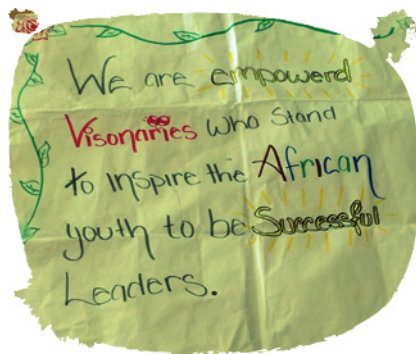 We are empowerd
Visonaries who stand
to Inspire the African
youth to be Successful
Leaders.